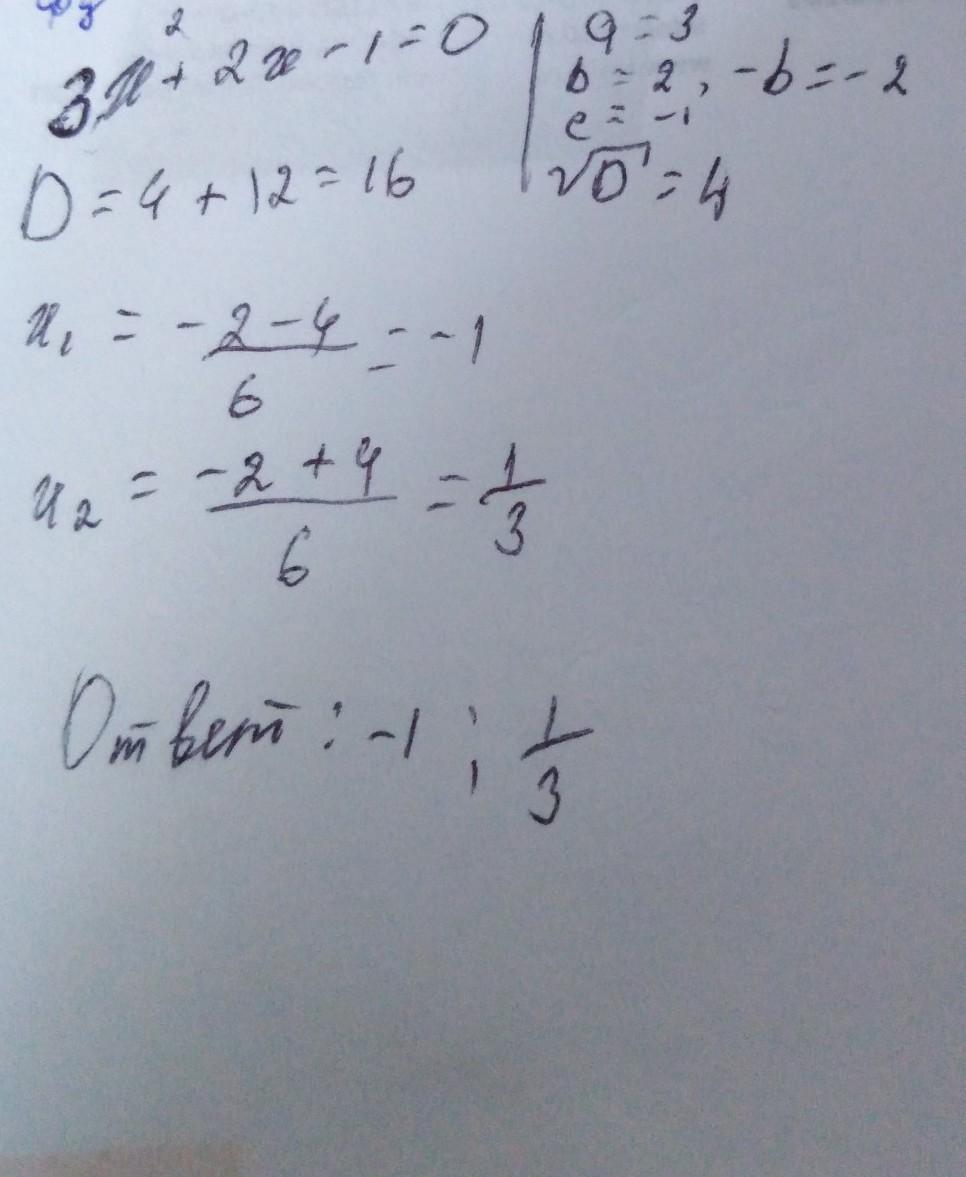 3x² + 2x - 1 = 0
a = 3
b = 2, -b = -2
c = -1
√D = 4
D = 4 + 12 = 16
x₁ = (-2 - 4)/6 = -1
x₂ = (-2 + 4)/6 = 1/3
Ответ: -1; 1/3